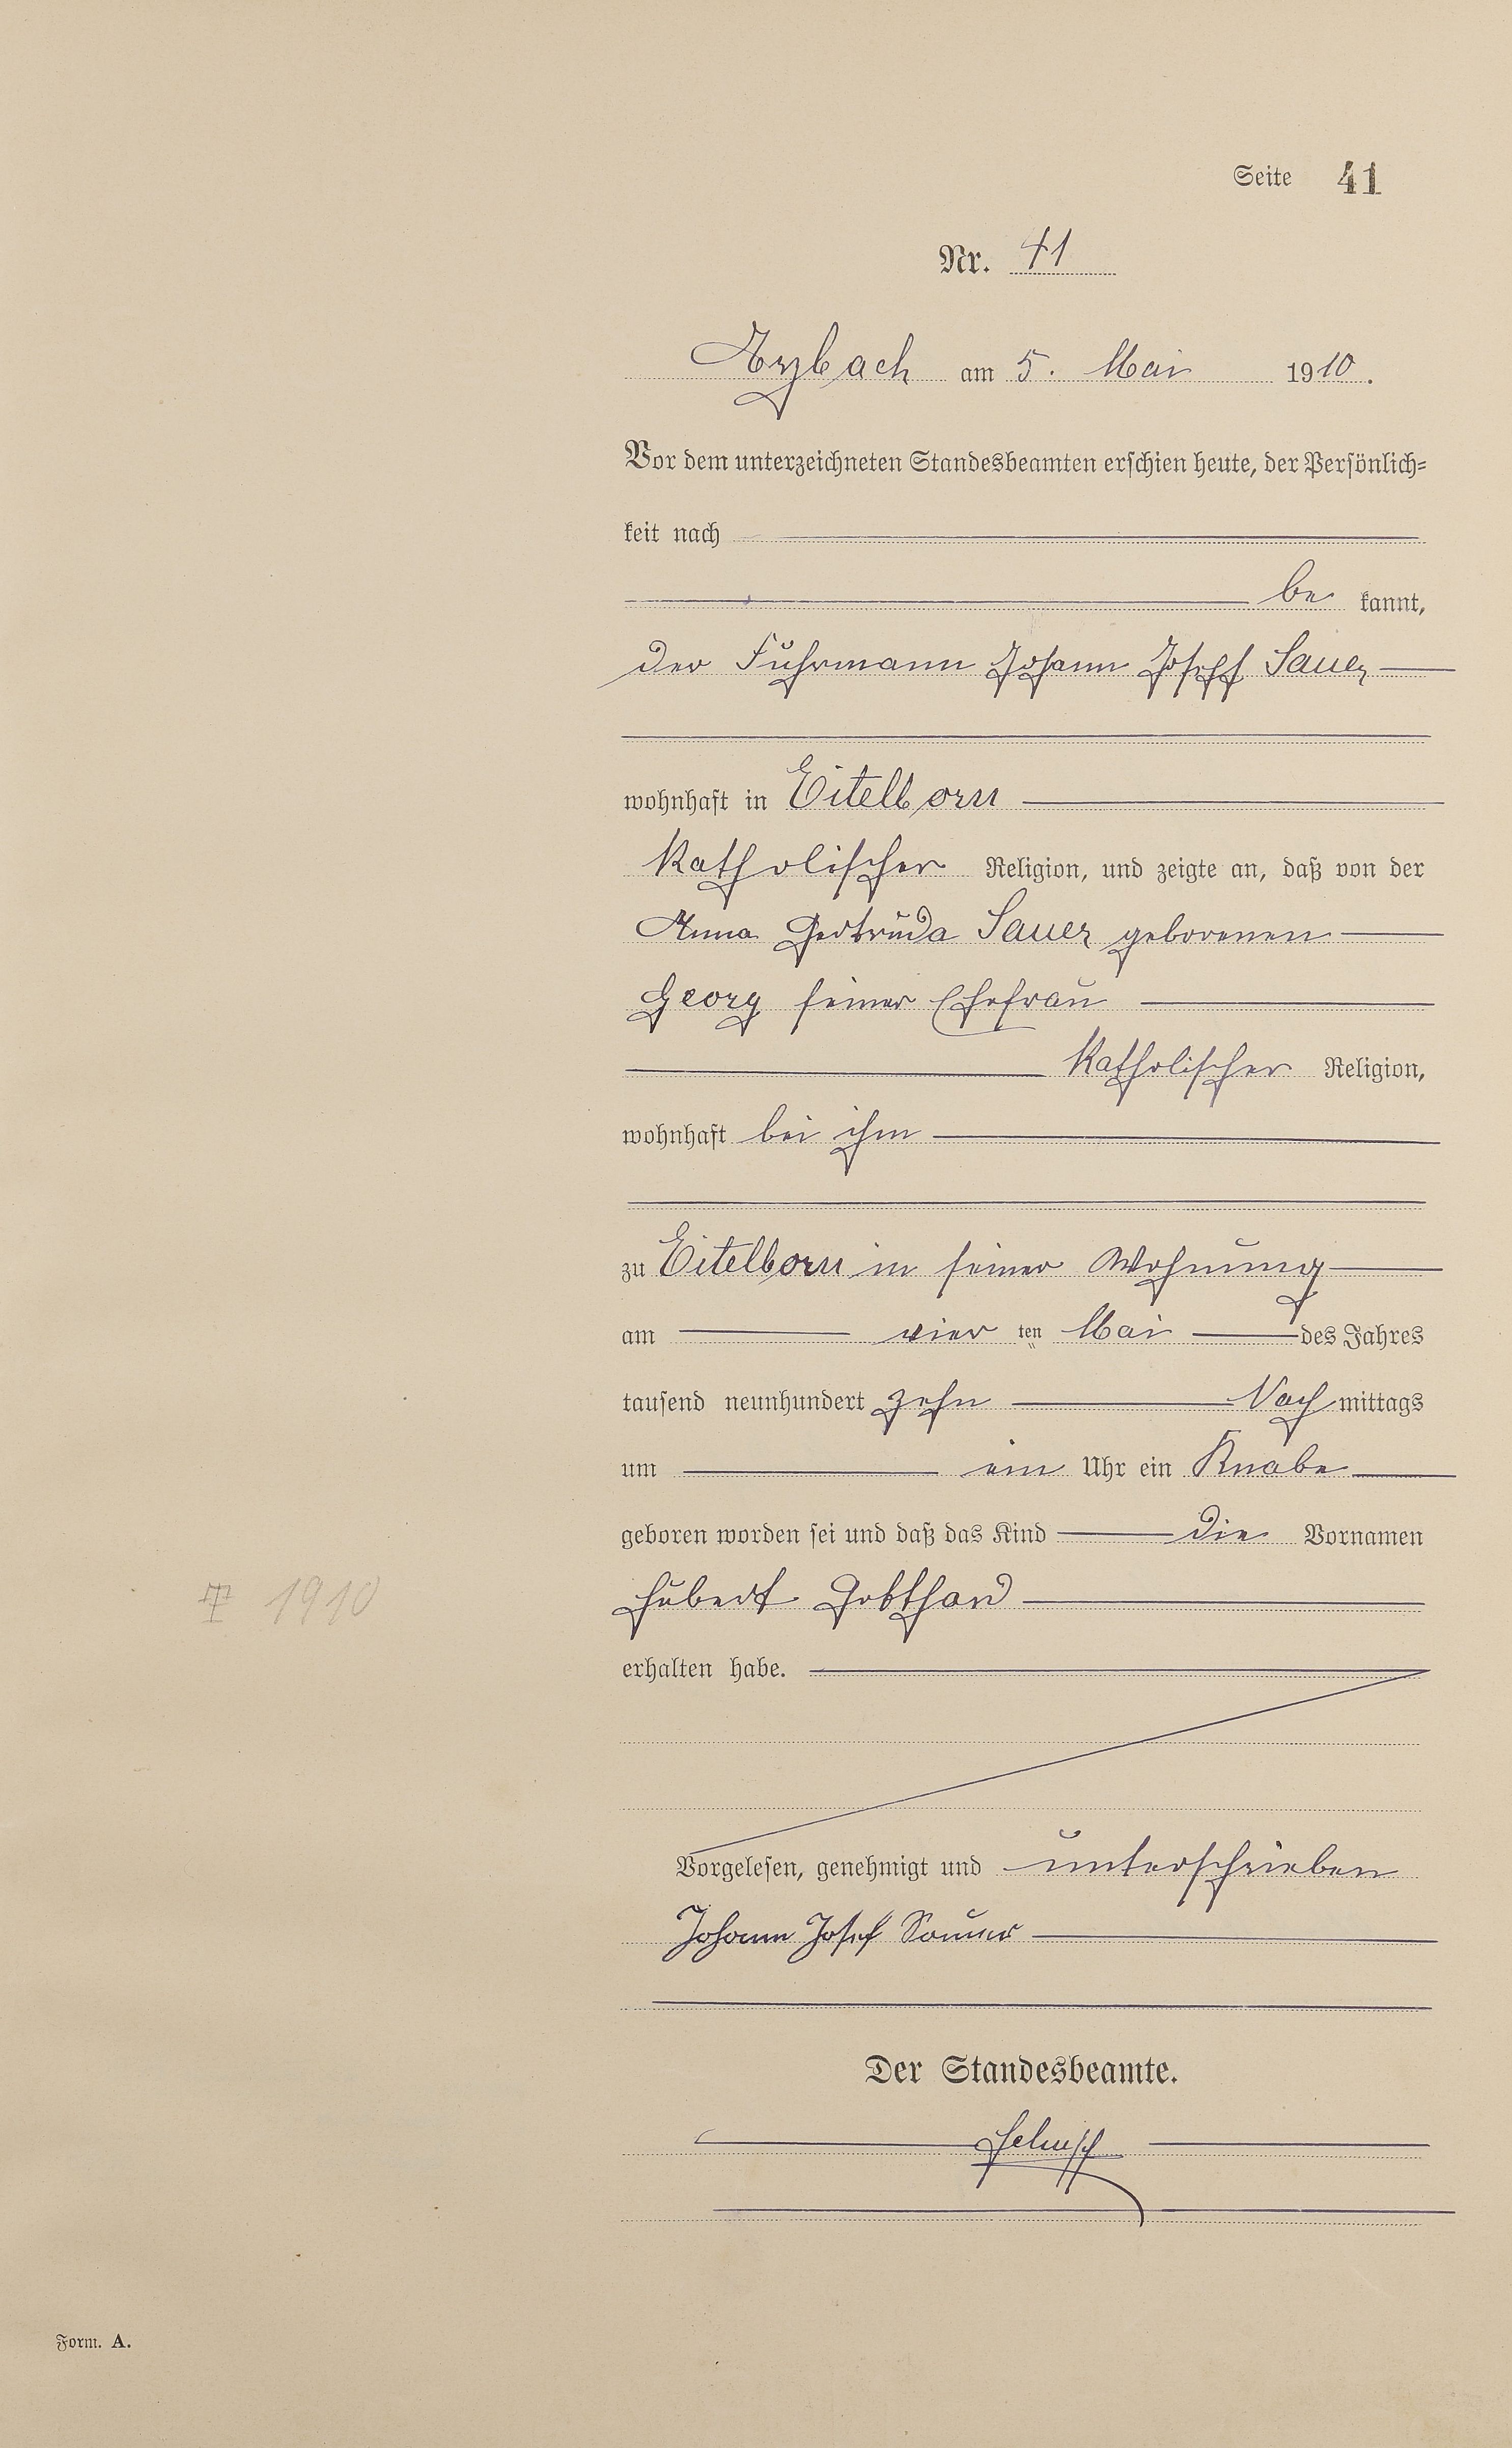 Seite 41
Nr. 41
Arzbach am 5. Mai 1910.
Vor dem unterzeichneten Standesbeamten erschien heute, der Persönlich=
keit nach
be kannt,
der Fuhrmann Johann Joseph Sauer
wohnhaft in Eitelborn
katholischer Religion, und zeigte an, daß von der
Anna Gertruda Sauer geborenen
Georg seiner Ehefrau
katholischer Religion,
wohnhaft bei ihm
zu Eitelborn in seiner Wohnung
am vier ten Mai des Jahres
tausend neunhundert zehn Nach mittags
um ein Uhr ein Knabe
geboren worden sei und daß das Kind die Vornamen
† 1910
Hubert Gotthard
erhalten habe.
Vorgelesen, genehmigt und unterschrieben
Johann Josef Sauer
Der Standesbeamte.
Form. A.